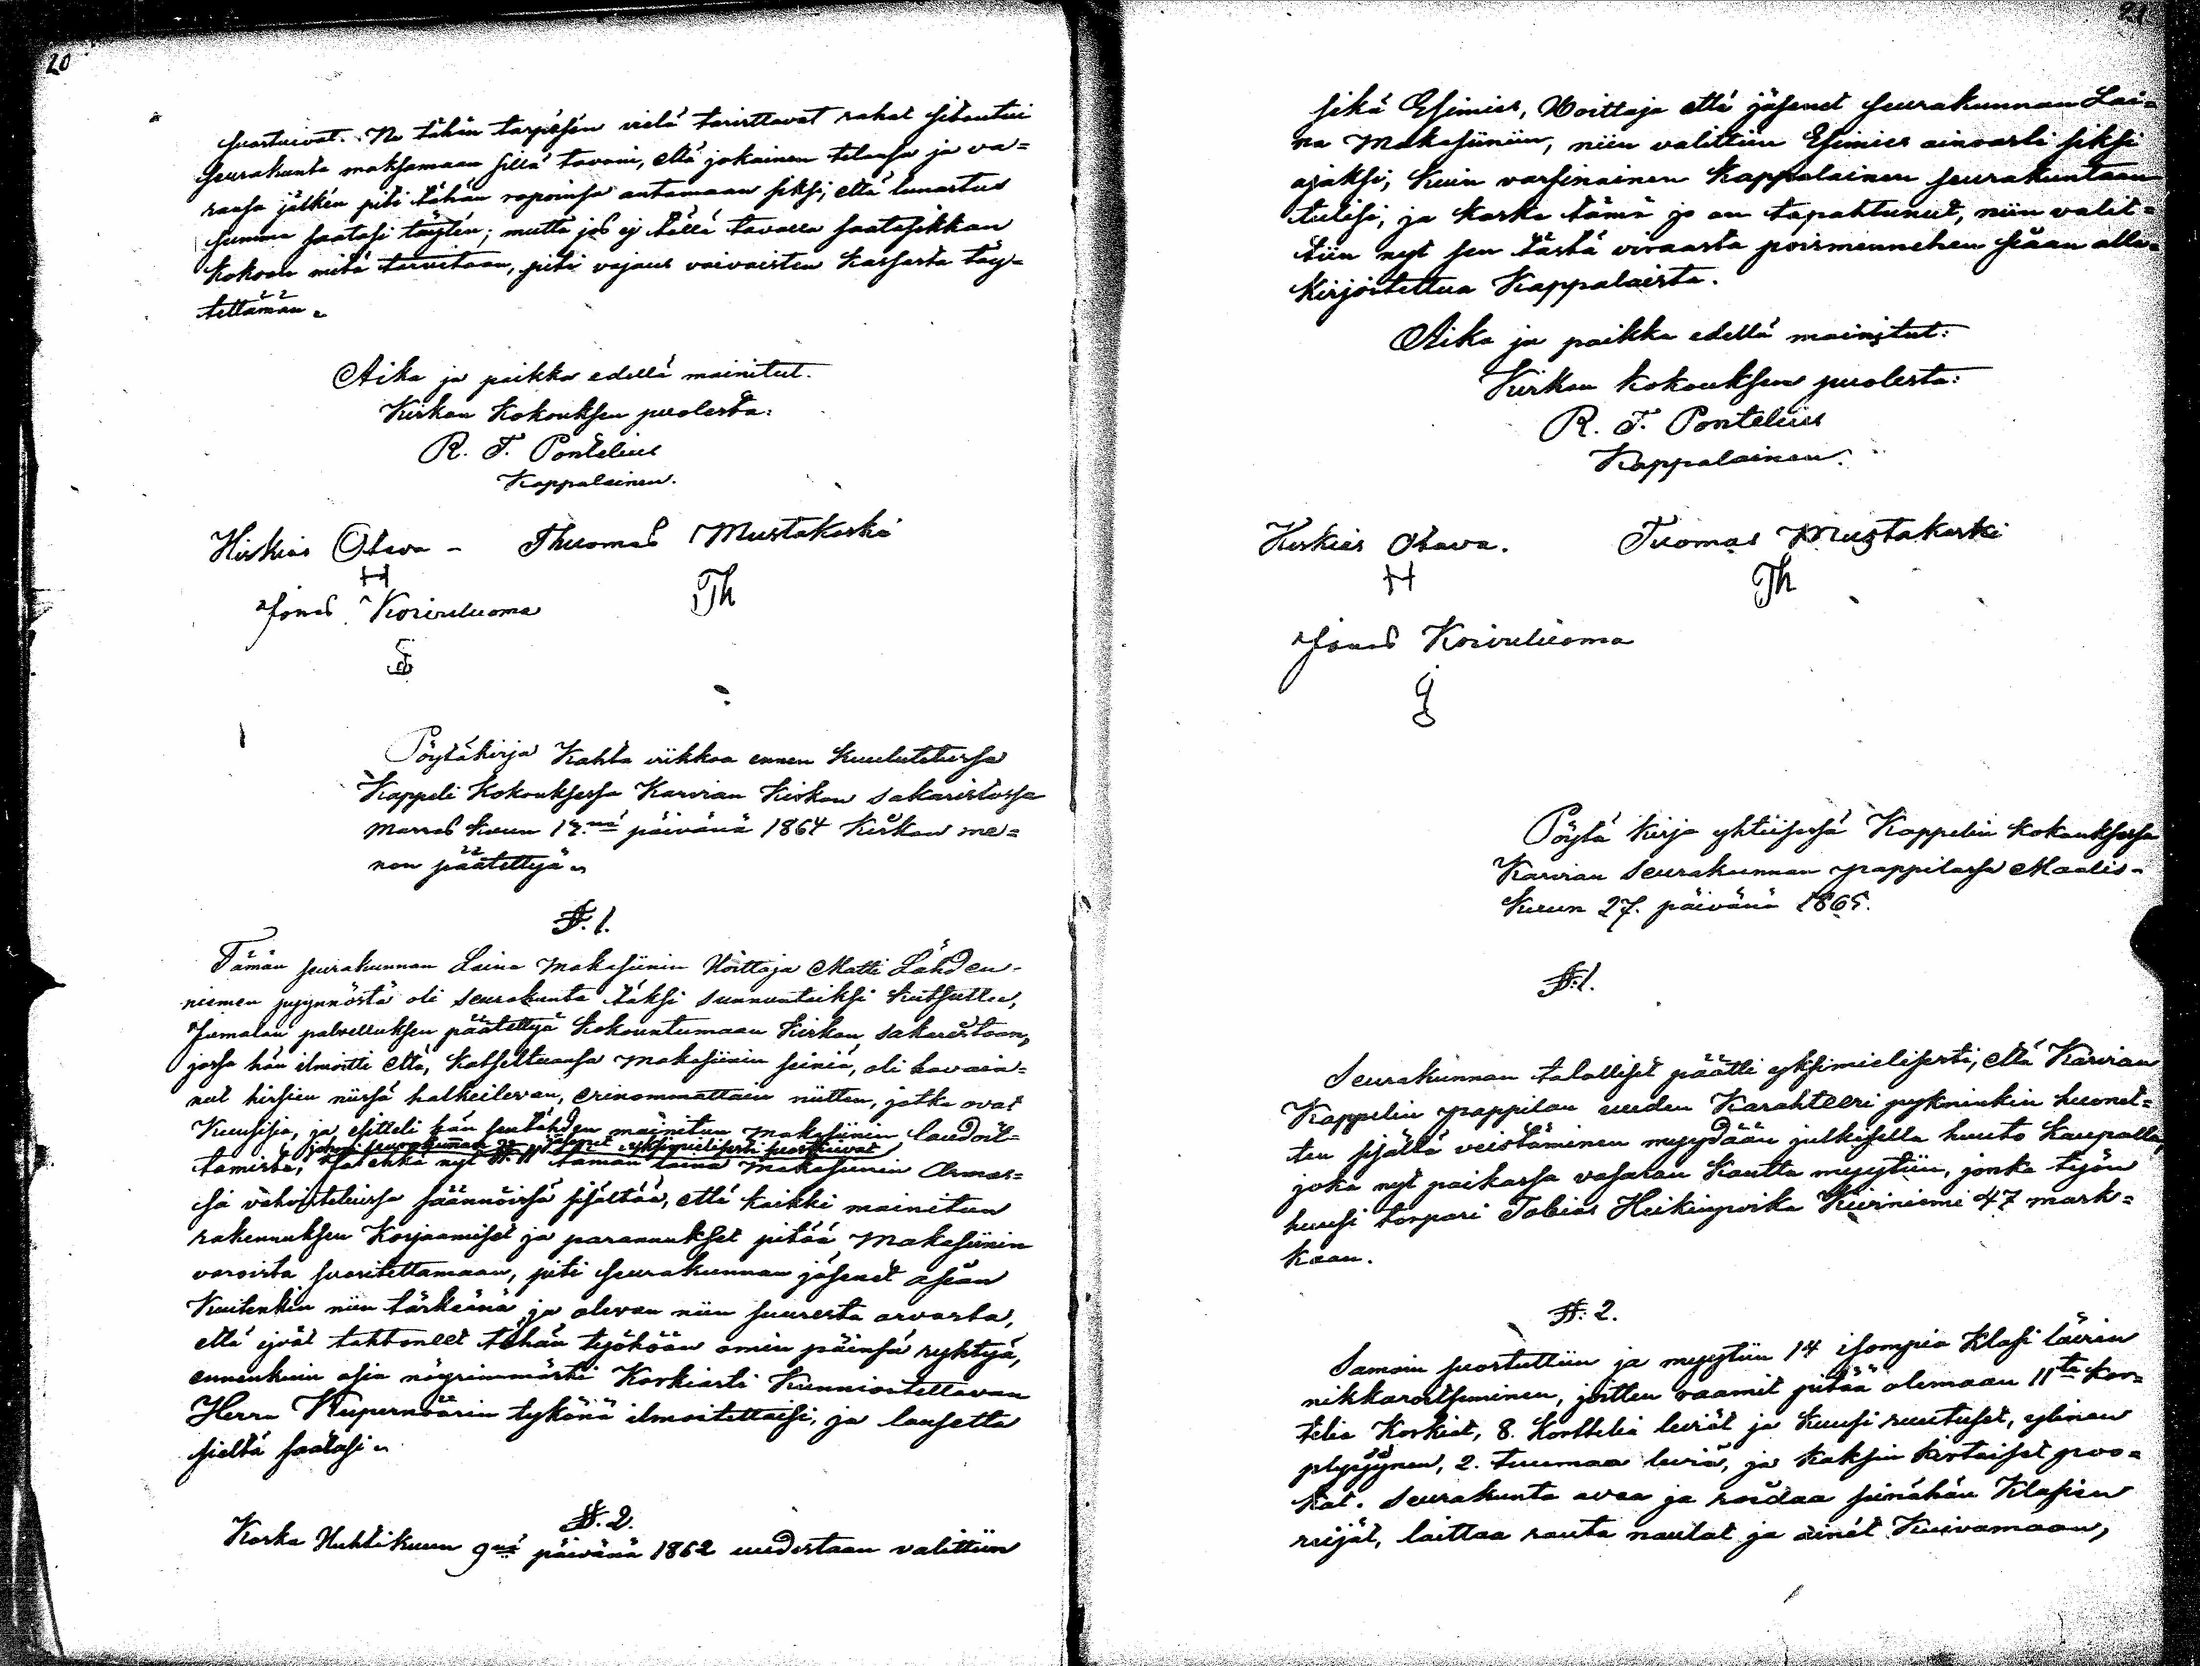 20
suostuivat. Ne tähän tarpesen vielä tarvittavat rahat sitoutui
seurakunta maksamaan sillä tavoin, että jokainen tilansa ja va=
ransa jälken piti tähän roponsa antamaan siksi, että lunastus
summa saatasi täyten; mutta jos ej tällä tavalla saatasikkan
kokoon mitä tarvitaan, piti vajaus vaivaisten kassasta täy=
tettämän.
Aika ja paikka edellä mainitut.
Kirkon kokouksen puolesta:
R. F. Pontelius
Kappalainen.
Hiskias Otava - Thuomas Mustakoski
H
Jonas Koivuluoma Th
Pöytäkirja Kahta viikkoa ennen kuulutetussa
Kappeli kokouksessa Karvian Kirkon sakaristossa
Marras kuun 17.nä päivänä 1864 kirkon me=
non päätettyä.
§. 1.
Tämän seurakunnan Laina Makasiinin Hoittaja Matti Lähden-
niemen pyynnöstä oli seurakunta täksi sunnuntaiksi kutsuttu,
Jumalan palvelluksen päätettyä kokountumaan Kirkon sakaristoon,
jossa hän ilmoitti että, katseltuansa makasiinin seiniä, oli havain=
nut hirsien niissä halkeilevan, erinommattain niitten, jotka ovat
Kuusisia, ja esitteli hän sentähden mainitun makasiinin laudoit=
johon seurakunnan jäsenet yksimielisesti suostuivat
tamista, Ja ehkä nyt §. 11 tämän laina makasiinin Armos=
sa vahvistetuissa säännöissä sisältää, että kaikki mainitun
rakennuksen Korjaamiset ja parannukset pitää Makasiinin
varoista suoritettamaan, piti seurakunnan jäsenet asian
Kuitenkin niin tärkeänä ja olevan niin suuresta arvosta,
että ejvät tahtoneet tähän työhöön omin päinsä ryhtyä,
ennenkuin asia nöyrimmästi Korkiasti Kunnioitettavan
Herra Kupernöörin tykönä ilmoitettaisi, ja lausetta
sieltä saatasi.
§. 2.
Koska Huhtikuun 9nä päivänä 1862 uudestaan valittiin
21
sekä Esimies, Hoittaja että jäsenet seurakunnan Lai=
na Makasiiniin, niin valittiin Esimies ainoasti siksi
ajaksi, kuin varsinainen kappalainen seurakuntaan
tulisi, ja koska tämä jo on tapahtunut, niin valit=
tiin nyt sen tästä virasta poismennehen siaan alla=
kirjoitettua Kappalaista.
Aika ja paikka edellä mainitut:
Kirkon kokouksen puolesta:
R. F. Pontelius
Kappalainen.
Hiskias Otava. Tuomas Mustakoski
H Th
Jonas Koivuluoma
Pöytä kirja yhteisessä Kappelin kokouksessa
Karvian Seurakunnan pappilassa Maalis-
kuun 27. päivänä 1865.
§. 1.
Seurakunnan talolliset päätti yksimielisesti, että Karvian
Kappelin pappilan uuden Karahteeri pykninkin huonet=
ten sisältä veistäminen myydään julkisella huuto kaupalla,
joka nyt paikassa vasaran kautta myytiin, jonka työn
huusi torpari Tobias Heikinpoika Kiviniemi 47 mark=
kaan.
§. 2.
Samoin suostuttiin ja myytiin 14 isompia klasi lävien
nikkaroitseminen, joitten raamit pitää olemaan 11ta kor=
telia korkiat, 8. korttelia leviät ja kuusi ruutuset, ylinen
2. tuumaa leviä, ja kaksin kertaiset proo=
kat. Seurakunta avaa ja raidaa seinähän klasien
reijät, laittaa rauta naulat ja ainet kuivamaan,